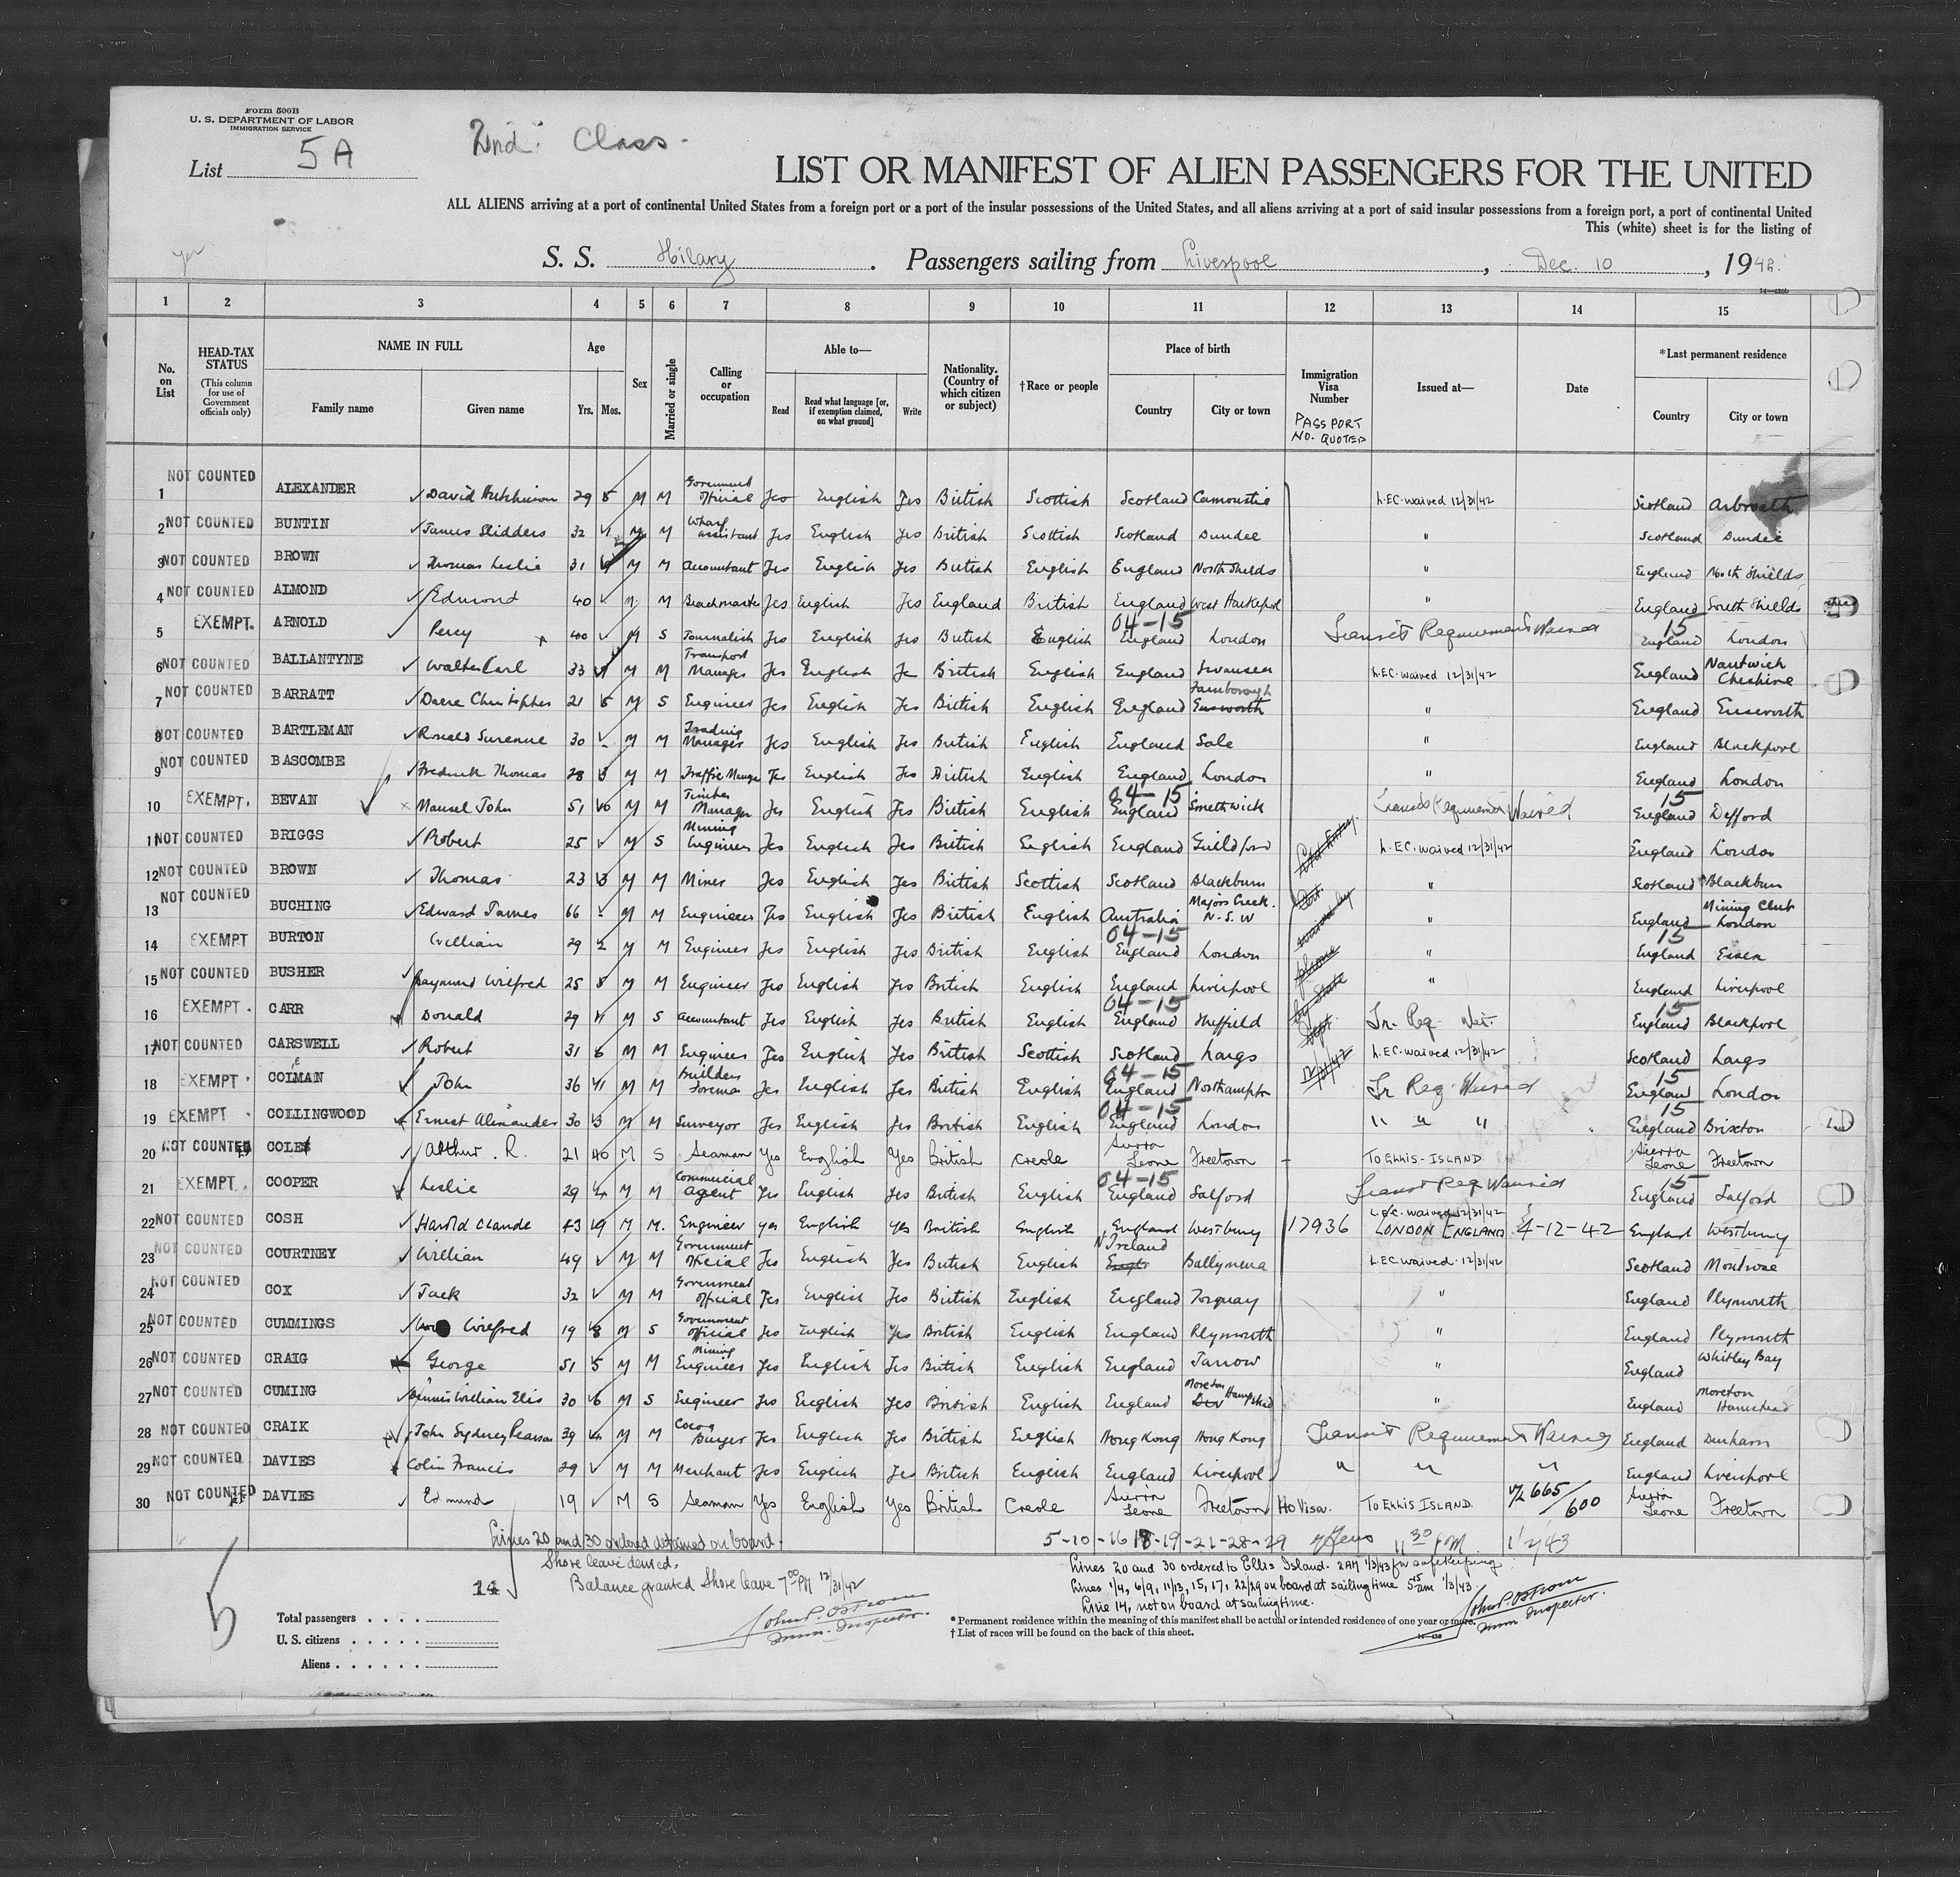 Form 500B
U. S. DEPARTMENT OF LABOR
IMMIGRATION SERVICE
List 5A
2nd. Class.
LIST OR MANIFEST OF ALIEN PASSENGERS FOR THE UNITED
ALL ALIENS arriving at a port of continental United States from a foreign port or a port of the insular possessions of the United States, and all aliens arriving at a port of said insular possessions from a foreign port, a port of continental United
This (white) sheet is for the listing of
S. S. Hilary. Passengers sailing from Liverpool, Dec. 10, 1942.
1 2 3 4 5 6 7 8 9 10 11 12 13 14 15
No. on List
HEAD-TAX STATUS (This column for use of Government officials only)
NAME IN FULL Family name Given name
Age Yrs. Mos.
Sex
Married or single
Calling or occupation
Able to— Read Read what language [or, if exemption claimed, on what ground] Write
Nationality. (Country of which citizen or subject)
†Race or people
Place of birth Country City or town
Immigration Visa Number PASSPORT NO. QUOTED
Issued at—
Date
*Last permanent residence Country City or town
1 NOT COUNTED ALEXANDER David Hutchinson 29 5 M M Government official Yes English Yes British Scottish Scotland Carnoustie L.EC. waived 12/31/42 Scotland Arbroath
2 NOT COUNTED BUNTIN James Slidders 32 M M Wharf assistant Yes English Yes British Scottish Scotland Dundee " Scotland Dundee
3 NOT COUNTED BROWN Thomas Leslie 31 M M Accountant Yes English Yes British English England North Shields " England North Shields
4 NOT COUNTED ALMOND Edmond 40 M M Beachmaster Yes English Yes England British England West Hartlepool " England South Shields
5 EXEMPT. ARNOLD Percy 40 M S Journalist Yes English Yes British English 04-15 England London Transit Requirement Waived 15 England London
6 NOT COUNTED BALLANTYNE Walter Earl 33 M M Transport Manager Yes English Yes British English England Swansea L.EC. waived 12/31/42 England Nantwich Cheshire
7 NOT COUNTED BARRATT Christopher 21 5 M S Engineer Yes English Yes British English England Farnborough Emsworth " England Emsworth
8 NOT COUNTED BARTLEMAN Ronald 30 - M M Trading Manager Yes English Yes British English England Sale " England Blackpool
9 NOT COUNTED BASCOMBE Fredrick Thomas 28 3 M M Traffic Manager Yes English Yes British English England London " England London
10 EXEMPT. BEVAN Mansel John 51 10 M M Timber Manager Yes English Yes British English 04-15 England Smethwick Transit Requirement Waived 15 England Defford
11 NOT COUNTED BRIGGS Robert 25 M S Mining Engineer Yes English Yes British English England Guildford L.EC. waived 12/31/42 England London
12 NOT COUNTED BROWN Thomas 23 3 M M Miner Yes English Yes British Scottish Scotland Blackburn " Scotland Blackburn
13 NOT COUNTED BUCHING Edward James 66 - M M Engineer Yes English Yes British English Australia Majors Creek. N.S.W " England Mining Club London
14 EXEMPT BURTON William 29 M M Engineer Yes English Yes British English 04-15 England London " 15 England Essex
15 NOT COUNTED BUSHER Raymond Wilfred 25 8 M M Engineer Yes English Yes British English England Liverpool " England Liverpool
16 EXEMPT. CARR Donald 29 M S Accountant Yes English Yes British English 04-15 England Sheffield Tr. Req. Wai. 15 England Blackpool
17 NOT COUNTED CARSWELL Robert 31 6 M M Engineer Yes English Yes British Scottish Scotland Largs L.EC. waived 12/31/42 Scotland Largs
18 EXEMPT. COLMAN John 36 11 M M Builders Foreman Yes English Yes British English 04-15 England Northampton Tr Req. Waived 15 England London
19 EXEMPT. COLLINGWOOD Ernest Alexander 30 3 M M Surveyor Yes English Yes British English 04-15 England London " " " 15 England Brixton
20 NOT COUNTED COLE Arthur. R. 21 10 M S Seaman Yes English Yes British Creole Sierra Leone Freetown - TO ELLIS-ISLAND Sierra Leone Freetown
21 EXEMPT. COOPER Leslie 29 4 M M Commercial Agent Yes English Yes British English 04-15 England Salford Transit Req Waived 15 England Salford
22 NOT COUNTED COSH Harold Claude 43 9 M M. Engineer Yes English Yes British English England Westbury 17936 L.EC. waived 12/31/42 LONDON ENGLAND 4-12-42 England Westbury
23 NOT COUNTED COURTNEY William 49 M M Government official Yes English Yes British English N. Ireland Ballymena L.EC waived. 12/31/42 Scotland Montrose
24 NOT COUNTED COX Jack 32 M M Government official Yes English Yes British English England Torquay " England Plymouth
25 NOT COUNTED CUMMINGS Wilfred 19 8 M S Government official Yes English Yes British English England Plymouth " England Plymouth
26 NOT COUNTED CRAIG George 51 5 M M Mining Engineer Yes English Yes British English England Jarrow " England Whitley Bay
27 NOT COUNTED CUMING Dennis William Elis 30 6 M S Engineer Yes English Yes British English England Moreton Hampstead " England Moreton Hamstead
28 NOT COUNTED CRAIK John Sydney Pearson 39 M M Cocoa Buyer Yes English Yes British English Hong Kong Hong Kong Transit Requirement Waived England Durham
29 NOT COUNTED DAVIES Colin Francis 29 M M Merchant Yes English Yes British English England Liverpool " " " England Liverpool
30 NOT COUNTED DAVIES Edmund 19 M S Seaman Yes English Yes British Creole Sierra Leone Freetown No Visa. TO ELLIS ISLAND. 665/600 Sierra Leone Freetown
Lines 20 and 30 ordered detained on board.
Shore leave denied.
Balance granted Shore leave 7 00 PM 12/31/42
John P. Ostrom
Imm. Inspector.
5-10-16 18-19-21-28-29 11 30 PM 1/2/43
Lines 20 and 30 ordered to Ellis Island. 2 AM 1/3/43 for safekeeping.
Lines 1/4, 6/9, 11/13, 15, 17, 22/29 on board at sailing time 5 45 am 1/3/43
Line 14, not on board at sailing time.
John P. Ostrom
Imm Inspector.
14
5
Total passengers
U. S. citizens
Aliens
* Permanent residence within the meaning of this manifest shall be actual or intended residence of one year or more.
† List of races will be found on the back of this sheet.